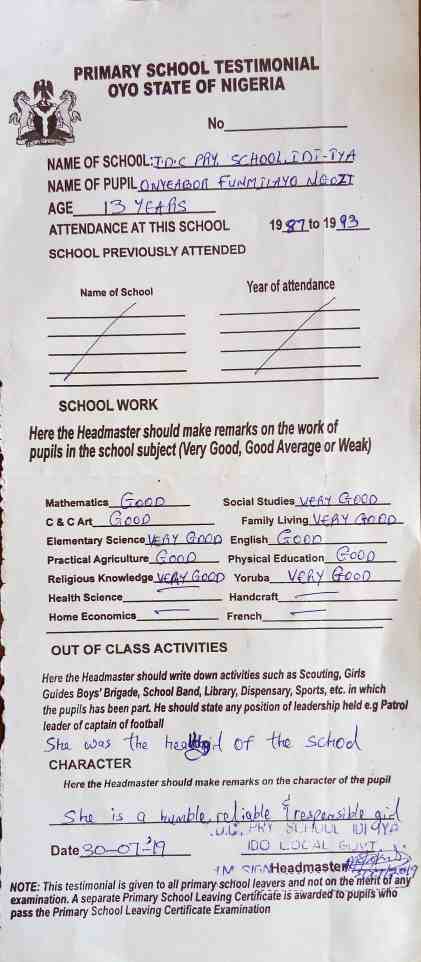 PRIMARY SCHOOL TESTIMONIAL
OYO STATE OF NIGERIA
No
NAME OF SCHOOL: I.D.C PRY SCHOOL, IDI-IYA
NAME OF PUPIL ONYEABOR FUNMILAYO NGOZI
AGE 13 YEARS
ATTENDANCE AT THIS SCHOOL 1987 to 1993
SCHOOL PREVIOUSLY ATTENDED
Name of School Year of attendance
SCHOOL WORK
Here the Headmaster should make remarks on the work of
pupils in the school subject (Very Good, Good Average or Weak)
Mathematics GOOD Social Studies VERY GOOD
C & C Art GOOD Family Living VERY GOOD
Elementary Science VERY GOOD English GOOD
Practical Agriculture GOOD Physical Education GOOD
Religious Knowledge VERY GOOD Yoruba VERY GOOD
Health Science Handcraft
Home Economics French
OUT OF CLASS ACTIVITIES
Here the Headmaster should write down activities such as Scouting, Girls
Guides Boys' Brigade, School Band, Library, Dispensary, Sports, etc. in which
the pupils has been part. He should state any position of leadership held e.g Patrol
leader of captain of football
She was the of the school
CHARACTER
Here the Headmaster should make remarks on the character of the pupil
She is a humble, reliable & responsible girl
PRY SCHOOL IDI IYA
Date 30-07-19 IDO LOCAL GOVT.
SIGN Headmaster
NOTE: This testimonial is given to all primary school leavers and not on the merit of any
examination. A separate Primary School Leaving Certificate is awarded to pupils who
pass the Primary School Leaving Certificate Examination